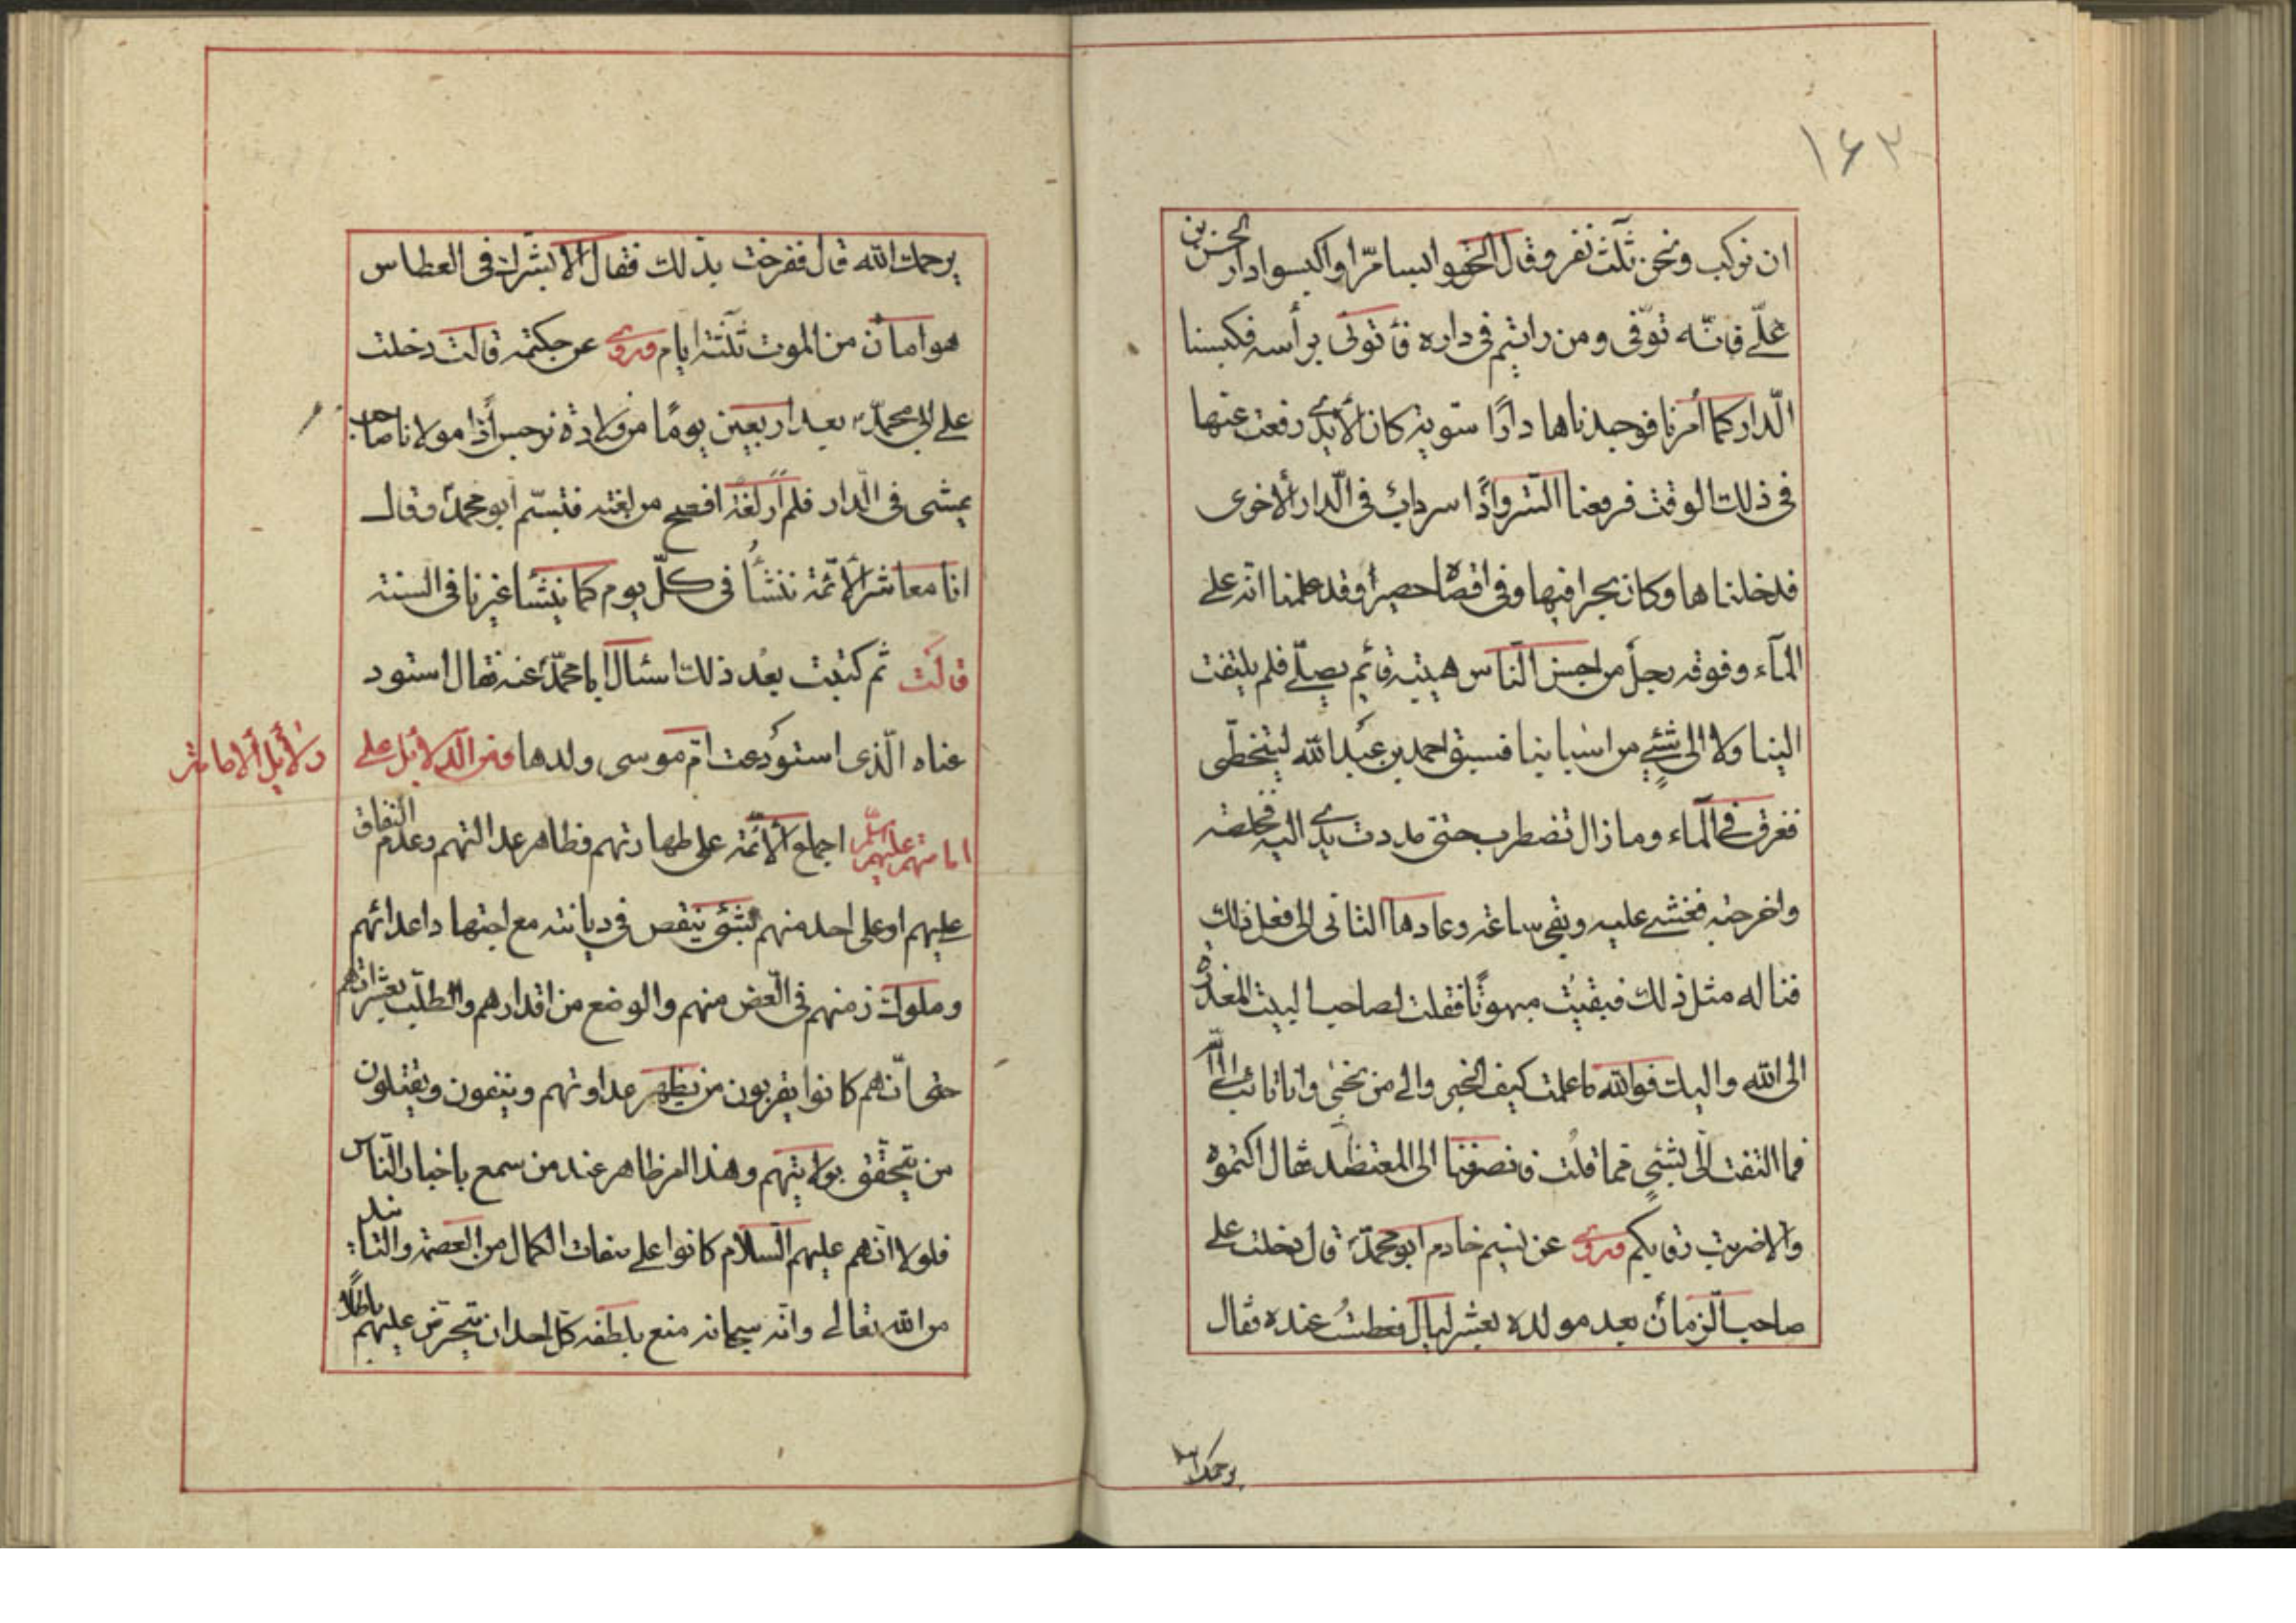 ١٦٣
ان نركب ونحن ثلث نفر وقال الحقوا بسامرا واكبسوا دار الحسن بن
علّى فانّه توّفى ومن رايتم فى داره فأتونى برأسه فكبسنا
الّدار كما أمرنا فوجدناها دارًا سّوية كان الأيدى رفعت عنها
فى ذلك الوقت فرفعنا السّتر واذا سرداب فى الّدار الأخرى
فدخلناها وكان بحرا فيها وفى اقصاه حصيرا وقد علمنا انه على
المآء وفوقه رجل من احسن النّاس هيئة قائم يصلّى فلم يلتفت
الينا ولا الى شيء من اسبابنا فسبق احمد بن عبد الله ليتخطّى
فغرق فى المآء وما زال تضطرب حتى مددت يدى اليه فخلصته
واخرجته فغشى عليه وبقى ساعة وعاد ها الثانى الى فعل ذلك
فناله مثل ذلك فبقيت مبهوتًا فقلت لصاحب البيت المعذرة
الى الله واليك فوالله ما علمت كيف الخبر والى من نجئ وانا تائب الى الله
فما التفت الى بشئ مما قلت فانصرفنا الى المعتضد فقال اكتموه
والا ضربت رقابكم وروى عن نسيم خادم ابو محمّد قال دخلت على
صاحب الّزمان بعد مولده بعشر ليال فعطست عنده فقال
يرحمك الله
يرحمك الله قال ففرحت بذلك فقال الا ابشرك فى العطاس
هو امان من الموت ثلثة ايام وروى عن حكيمة قالت دخلت
على ابى محمّد بعد اربعين يومًا من ولادة نرجس اذا مولانا صاحب
يمشى فى الّدار فلم أر لغة افصح من لغته فتبسّم ابو محمّد وقال
انا معاشر الأئمة ننشأ فى كلّ يوم كما ينشأ غيرنا فى السنة
قالت ثم كنت بعد ذلك اسئال ابا محمّد عنه فقال استود
عناه الّذى استودعت امّ موسى ولدها ومن الّدلائل على
دلائل الامامة
امامتهم عليهم السلم اجماع الأئمّة على طهارتهم وظاهر عدالتهم وعدم النفاق
عليهم او على احد منهم بشئ ينقص فى ديانته مع اجتهاد اعدائهم
وملوك زمنهم فى الغض منهم والوضع من اقدارهم والطلب بعثراتهم
حتى انّهم كانوا يقربون من يظهر عداوتهم وينفون ويقتلون
من يتحقّق بولايتهم وهذا امر ظاهر عند من سمع باخبار النّاس
فلولا انهم عليهم السّلام كانوا على صفات الكمال من العصمة والتائيد
من الله تعالى وانه سبحانه منع بلطفه كل احد ان يتخرّص عليهم باطلًا